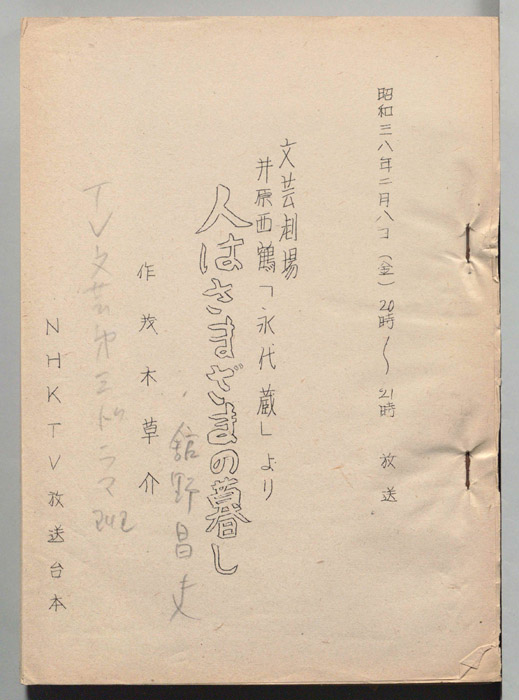 昭和三八年二月八日(金)20時〜21時 放送
文芸劇場
井原西鶴「永代蔵」より
人はさまざまの暮し
舘野昌夫
作 茂木草介
TV文芸第三ドラマ班
NHKTV放送台本